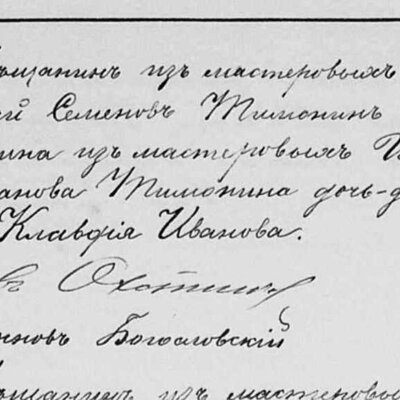 ѣщанинъ изъ мастеровыхъ
ей Семеновъ Тимонинъ
ина изъ мастеровыхъ
анова Тимонина дочь-д
Клавдія Иванова.
въ Охотин
новъ Богословскій
ѣщанинъ изъ мастеровы